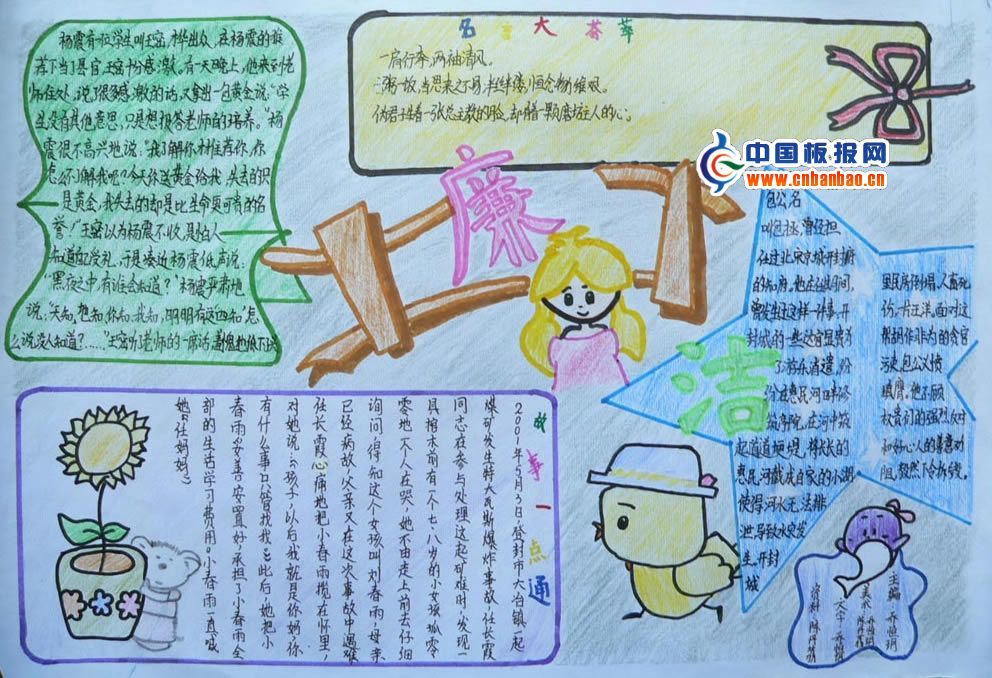 杨震有一位学生叫王密,才华出众,在杨震的推
荐下当了县官,王密十分感激。有一天晚上,他来到老
师住处,说了很多感激的话,又拿出一包黄金说:“学
生没有其他意思,只是想报答老师的培养。”杨
震很不高兴地说:“我了解你才推荐你,你
怎么不了解我呢?今天你送黄金给我,失去的只
是黄金,我失去的却是比生命更可贵的名
誉!”王密以为杨震不收,是怕人
知道他受礼,于是凑近杨震低声说:
“黑夜之中有谁会知道?”杨震严肃地
说,“天知,地知,你知,我知,明明有这四知,怎
么说没人知道?……”王密听了老师的一席话,羞愧地低下头
名言大荟萃
一肩行李,两袖清风。
伪君子生着一张总主教的脸,却揣着一颗磨坊主人的心。
中国板报网
www.cnbanbao.cn
廉
洁
包公名
叫包拯,曾经担
任过北宋京城开封府
的知府,他在任期间,
曾发生过这样一件事,开
封城的一些达官显贵为
了游乐消遣,纷
纷在惠民河口
在河中筑
起道道堤堰,将长长的
惠民河截成自家的小湖
使得河水无法排
泄,导致水灾发
生。开封
城
里民房倒塌,人畜死
伤,一片汪洋。面对这
帮胡作非为的贪官
污吏,包公义愤
填膺。他不顾
权贵们的强烈反对
和好心人的善意劝
阻,毅然下令拆毁。
故事一点通
2001年5月3日登封市大冶镇一起
煤矿发生特大瓦斯爆炸事故,任长霞
同志在参与处理这起矿难时,发现一
具棺木前有一个七八岁的小女孩孤零
零地一个人在哭,她不由走上前去仔细
询问,得知这个女孩叫刘春雨,母亲
已经病故,父亲又在这次事故中遇难
任长霞心痛地把小春雨揽在怀里,
对她说:“孩子,以后我就是你妈,你
有什么事只管找我”此后,她把小
春雨妥善安置好,承担了小春雨全
部的生活学习费用。小春雨一直喊
她“任妈妈”
主编:乔恒玥
美术:乔恒玥
文字:乔恒玥
资料: